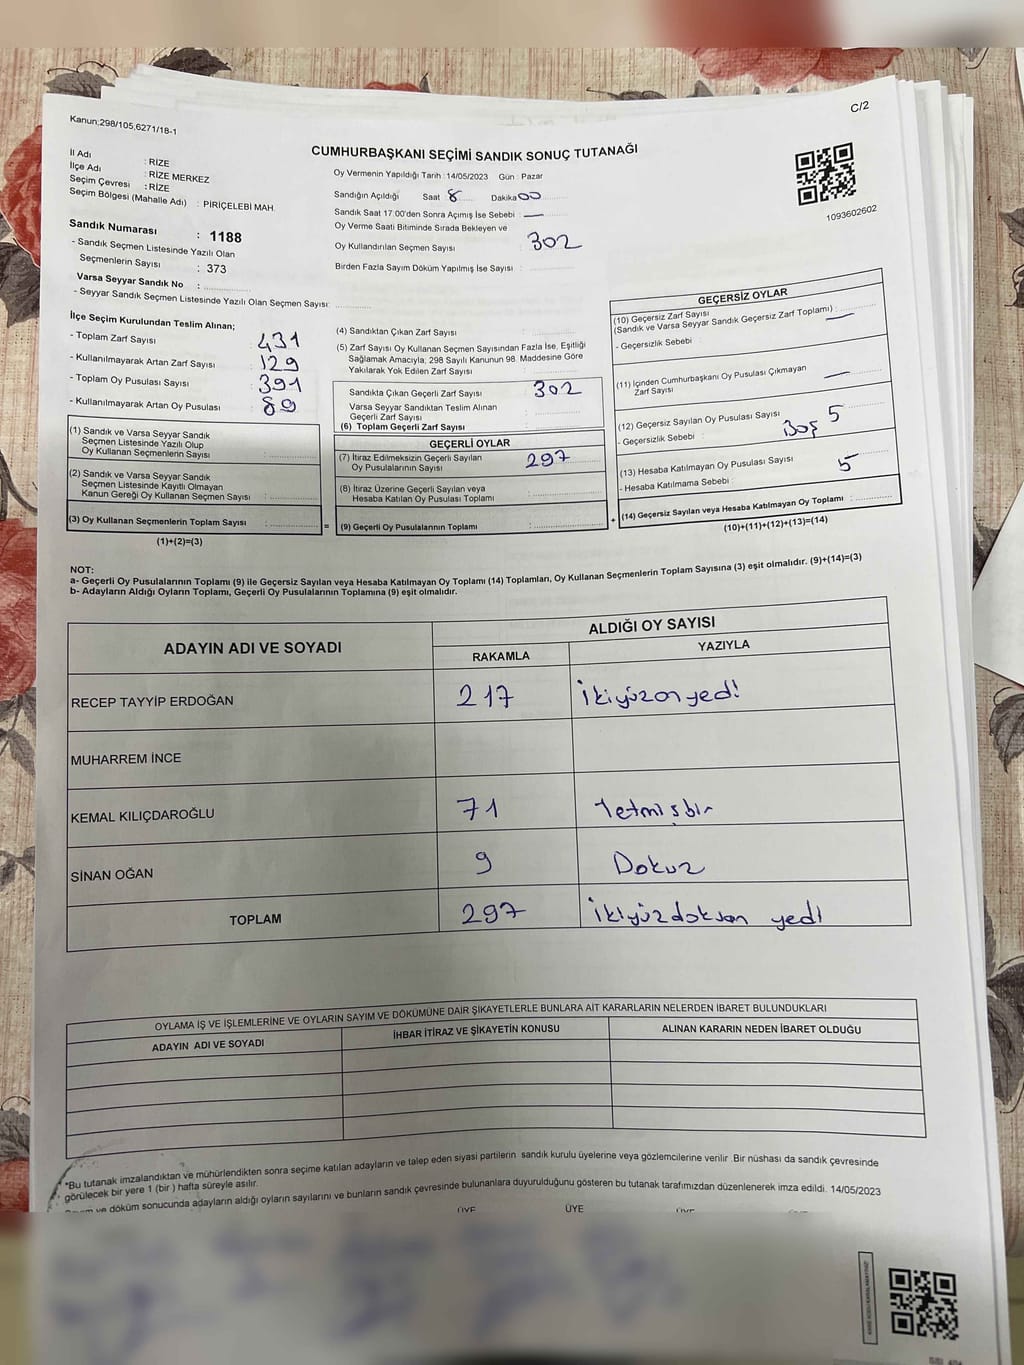 C/2
Kanun;298/105,6271/18-1
CUMHURBAŞKANI SEÇİMİ SANDIK SONUÇ TUTANAĞI
1093602602
İl Adı : RİZE
İlçe Adı : RİZE MERKEZ
Seçim Çevresi : RİZE
Seçim Bölgesi (Mahalle Adı) : PİRİÇELEBİ MAH.
Sandık Numarası : 1188
- Sandık Seçmen Listesinde Yazılı Olan
Seçmenlerin Sayısı : 373
Varsa Seyyar Sandık No :
- Seyyar Sandık Seçmen Listesinde Yazılı Olan Seçmen Sayısı:
Oy Vermenin Yapıldığı Tarih : 14/05/2023 Gün : Pazar
Sandığın Açıldığı Saat 8 Dakika 00
Sandık Saat 17.00'den Sonra Açımış İse Sebebi : —
Oy Verme Saati Bitiminde Sırada Bekleyen ve
Oy Kullandırılan Seçmen Sayısı : 302
Birden Fazla Sayım Döküm Yapılmış İse Sayısı :
İlçe Seçim Kurulundan Teslim Alınan;
- Toplam Zarf Sayısı : 431
- Kullanılmayarak Artan Zarf Sayısı : 129
- Toplam Oy Pusulası Sayısı : 391
- Kullanılmayarak Artan Oy Pusulası : 89
(1) Sandık ve Varsa Seyyar Sandık
Seçmen Listesinde Yazılı Olup
Oy Kullanan Seçmenlerin Sayısı :
(2) Sandık ve Varsa Seyyar Sandık
Seçmen Listesinde Kayıtlı Olmayan
Kanun Gereği Oy Kullanan Seçmen Sayısı :
(3) Oy Kullanan Seçmenlerin Toplam Sayısı : =
(1)+(2)=(3)
(4) Sandıktan Çıkan Zarf Sayısı :
(5) Zarf Sayısı Oy Kullanan Seçmen Sayısından Fazla İse, Eşitliği
Sağlamak Amacıyla, 298 Sayılı Kanunun 98. Maddesine Göre
Yakılarak Yok Edilen Zarf Sayısı :
Sandıkta Çıkan Geçerli Zarf Sayısı : 302
Varsa Seyyar Sandıktan Teslim Alınan
Geçerli Zarf Sayısı :
(6) Toplam Geçerli Zarf Sayısı :
GEÇERLİ OYLAR
(7) İtiraz Edilmeksizin Geçerli Sayılan
Oy Pusulalarının Sayısı : 297
(8) İtiraz Üzerine Geçerli Sayılan veya
Hesaba Katılan Oy Pusulası Toplamı :
(9) Geçerli Oy Pusulalarının Toplamı : +
GEÇERSİZ OYLAR
(10) Geçersiz Zarf Sayısı
(Sandık ve Varsa Seyyar Sandık Geçersiz Zarf Toplamı) : —
- Geçersizlik Sebebi
(11) İçinden Cumhurbaşkanı Oy Pusulası Çıkmayan
Zarf Sayısı : —
(12) Geçersiz Sayılan Oy Pusulası Sayısı : 5
- Geçersizlik Sebebi : Boş
(13) Hesaba Katılmayan Oy Pusulası Sayısı : 5
- Hesaba Katılmama Sebebi :
(14) Geçersiz Sayılan veya Hesaba Katılmayan Oy Toplamı :
(10)+(11)+(12)+(13)=(14)
NOT:
a- Geçerli Oy Pusulalarının Toplamı (9) ile Geçersiz Sayılan veya Hesaba Katılmayan Oy Toplamı (14) Toplamları, Oy Kullanan Seçmenlerin Toplam Sayısına (3) eşit olmalıdır. (9)+(14)=(3)
b- Adayların Aldığı Oyların Toplamı, Geçerli Oy Pusulalarının Toplamına (9) eşit olmalıdır.
ADAYIN ADI VE SOYADI ALDIĞI OY SAYISI
RAKAMLA YAZIYLA
RECEP TAYYİP ERDOĞAN 217 İkiyüzonyedi
MUHARREM İNCE
KEMAL KILIÇDAROĞLU 71 Yetmişbir
SİNAN OĞAN 9 Dokuz
TOPLAM 297 İkiyüzdoksan yedi
OYLAMA İŞ VE İŞLEMLERİNE VE OYLARIN SAYIM VE DÖKÜMÜNE DAİR ŞİKAYETLERLE BUNLARA AİT KARARLARIN NELERDEN İBARET BULUNDUKLARI
ADAYIN ADI VE SOYADI İHBAR İTİRAZ VE ŞİKAYETİN KONUSU ALINAN KARARIN NEDEN İBARET OLDUĞU
*Bu tutanak imzalandıktan ve mühürlendikten sonra seçime katılan adayların ve talep eden siyasi partilerin sandık kurulu üyelerine veya gözlemcilerine verilir .Bir nüshası da sandık çevresinde
görülecek bir yere 1 (bir ) hafta süreyle asılır.
ve döküm sonucunda adayların aldığı oyların sayılarını ve bunların sandık çevresinde bulunanlara duyurulduğunu gösteren bu tutanak tarafımızdan düzenlenerek imza edildi. 14/05/2023
ÜYE ÜYE ÜYE